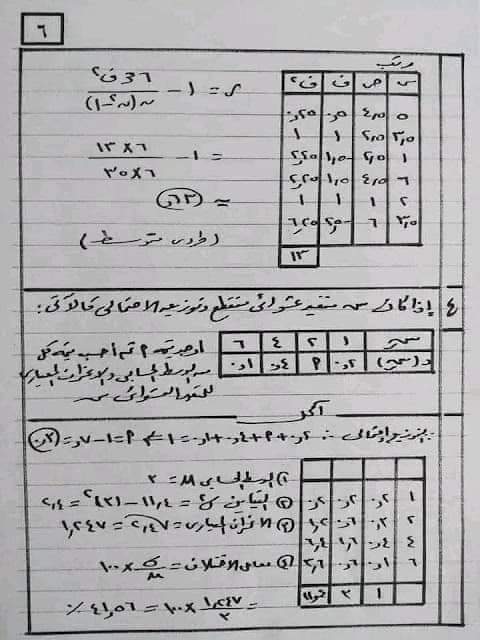 ٦
رتب
س | ص | ف | ف٢
٥ | ٤,٥ | ٠,٥ | ٠,٢٥
٣,٥ | ٢,٥ | ١ | ١
١ | ٢,٥ | -١,٥ | ٢,٢٥
٦ | ٤,٥ | ١,٥ | ٢,٢٥
٢ | ١ | ١ | ١
٣,٥ | ٦ | -٢,٥ | ٦,٢٥
١٣
ر = ١ - ٦ مجـ ف٢ / ن(ن٢ - ١)
= ١ - ٦ × ١٣ / ٦ × ٣٥
≈ ٠,٦٣
(طردى متوسط)
٤ إذا كان س متغير عشوائى متقطع وتوزيعه الاحتمالى كالآتى:
سر | ١ | ٢ | ٤ | ٦
د(سر) | ٠,٢ | ٩ | ٠,٤ | ٠,١
أوجد قيمة ٩ ثم أحسب قيمة كل
من الوسط الحسابى والانحراف المعيارى
للمتغير العشوائى س
الحل
∴ ٠,٢ + ٩ + ٠,٤ + ٠,١ = ١ ⇐ ٩ = ١ - ٠,٧ = ٠,٣
١ | ٠,٢ | ٠,٢ | ٠,٢
٢ | ٠,٣ | ٠,٦ | ١,٢
٤ | ٠,٤ | ١,٦ | ٦,٤
٦ | ٠,١ | ٠,٦ | ٣,٦
١ | ٣ | ١١,٤
① الوسط الحسابى μ = ٣
② التباين σ٢ = ١١,٤ - (٣)٢ = ٢,٤
③ الانحراف المعيارى = √٢,٤٧ = ١,٢٤٧
④ معامل الاختلاف = σ / μ × ١٠٠
= ١,٢٤٧ / ٣ × ١٠٠ = ٤١,٥٦ ٪